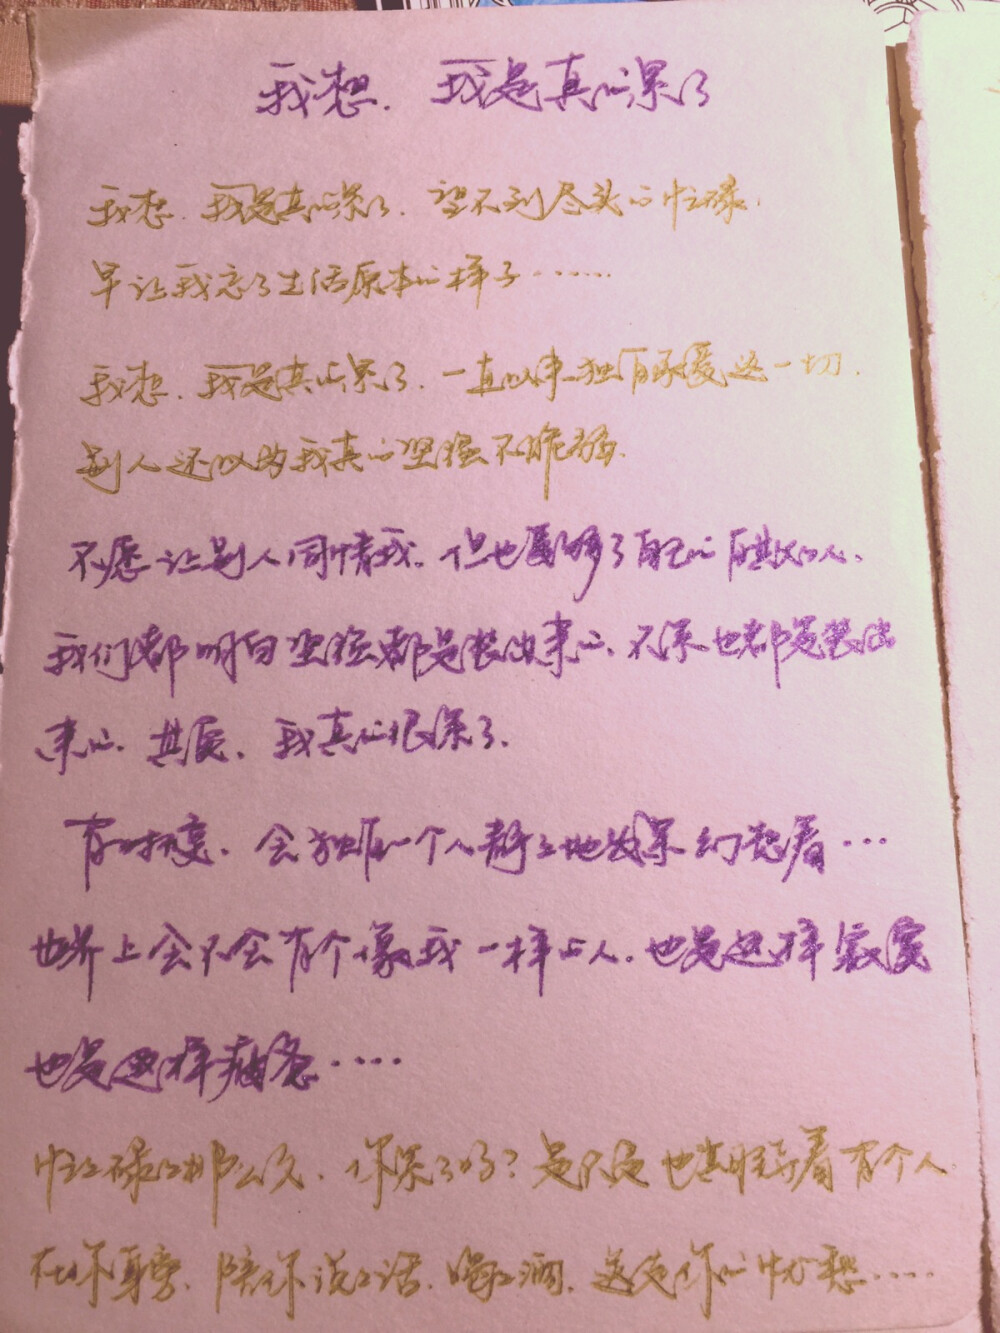 我想，我是真的累了
我想，我是真的累了，望不到尽头的忙碌，
早让我忘了生活原本的样子……
我想，我是真的累了，一直以来独自承受这一切，
别人还以为我真的坚强不脆弱。
不愿让别人同情我，但也受够了自己的自欺欺人、
我们都明白坚强都是装出来的、不累也都是装出
来的、其实、我真的很累了、
有时候，会独自一个人静静地发呆幻想着…
世界上会不会有个像我一样的人，也是这样寂寞
也是这样疲惫……
忙碌了那么久，你累了吗？是不是也期盼着有个人
在你身旁，陪你说说话，喝喝酒，